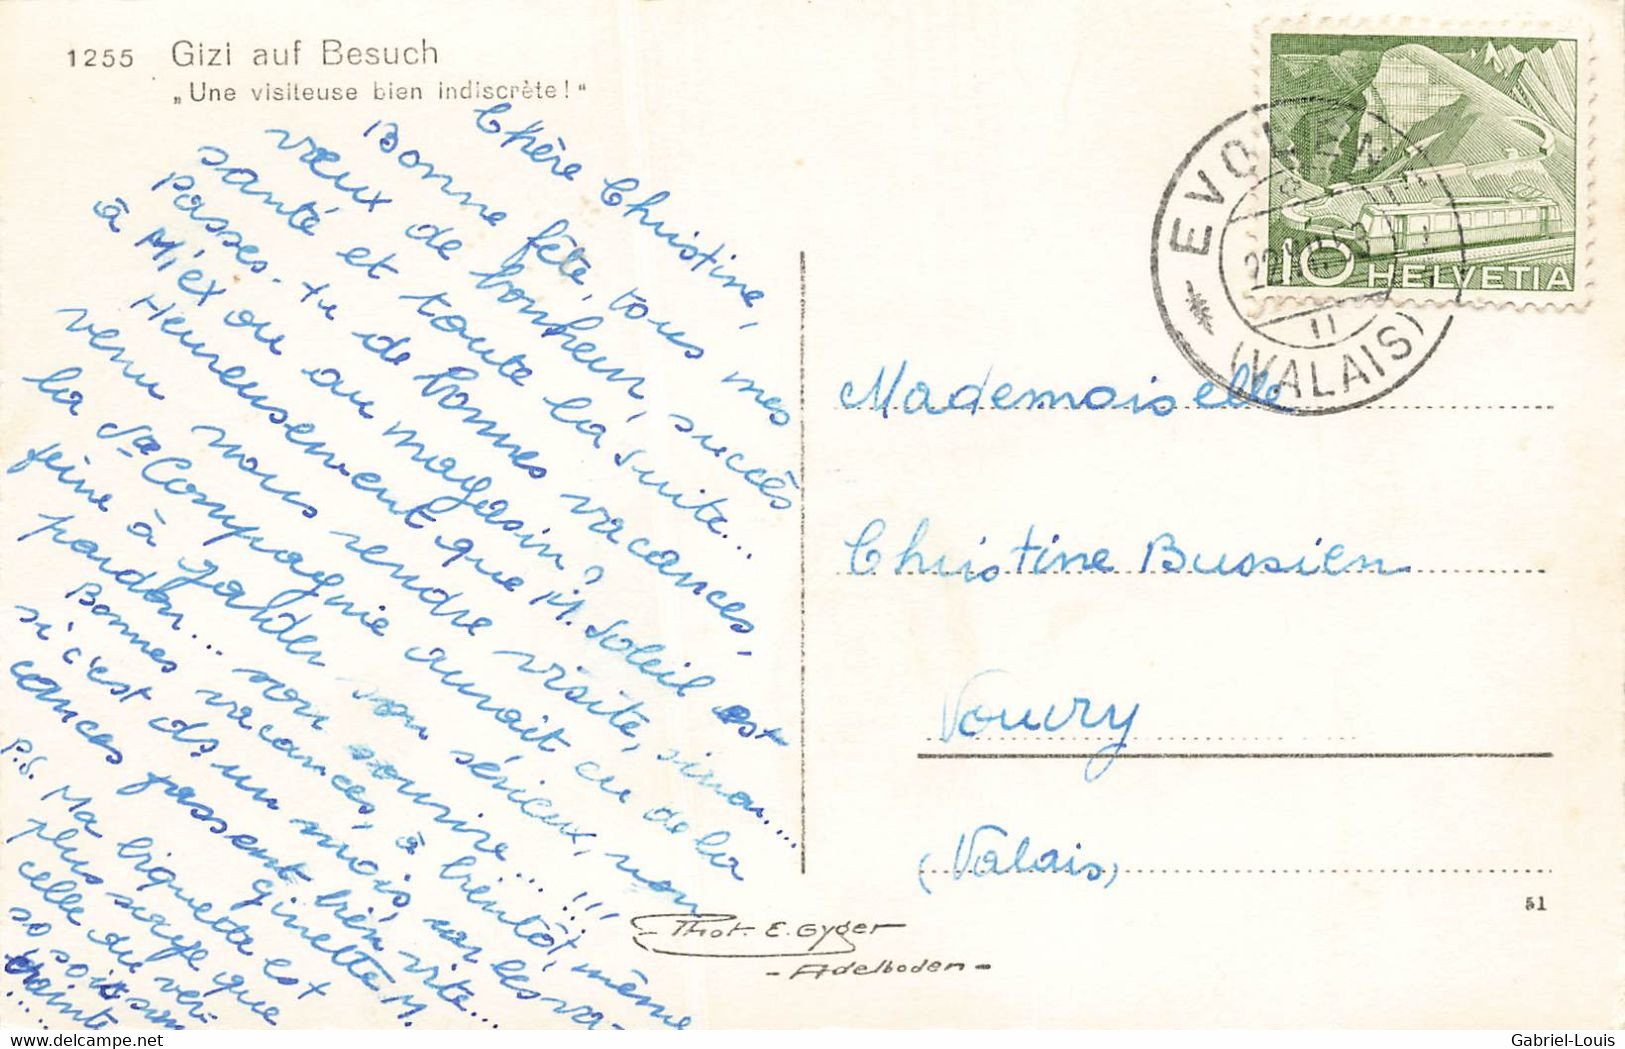 1255 Gizi auf Besuch
„Une visiteuse bien indiscrète!“
Chère Christine,
Bonne fête, tous mes
vœux de bonheur, succès
santé et toute la suite...
Passes-tu de bonnes vacances,
à Miex ou au magasin?
Heureusement que M. Soleil est
venu nous rendre visite, sinon....
la Ste Compagnie aurait eu de la
peine à garder son sérieux, non
pardon... son sourire....!!!
Bonnes vacances, à bientôt, même
si c'est ds un mois, car les va-
cances passent bien vite...
Ginette M.
P.S. Ma biquette est
plus sage que
celle du verso
so soit
crainte
.....
EVOLÈNE
(VALAIS)
10 HELVETIA
Mademoiselle
Christine Bussien
Vouvry
(Valais)
51
Phot. E. Gyger
- Adelboden -
Gabriel-Louis